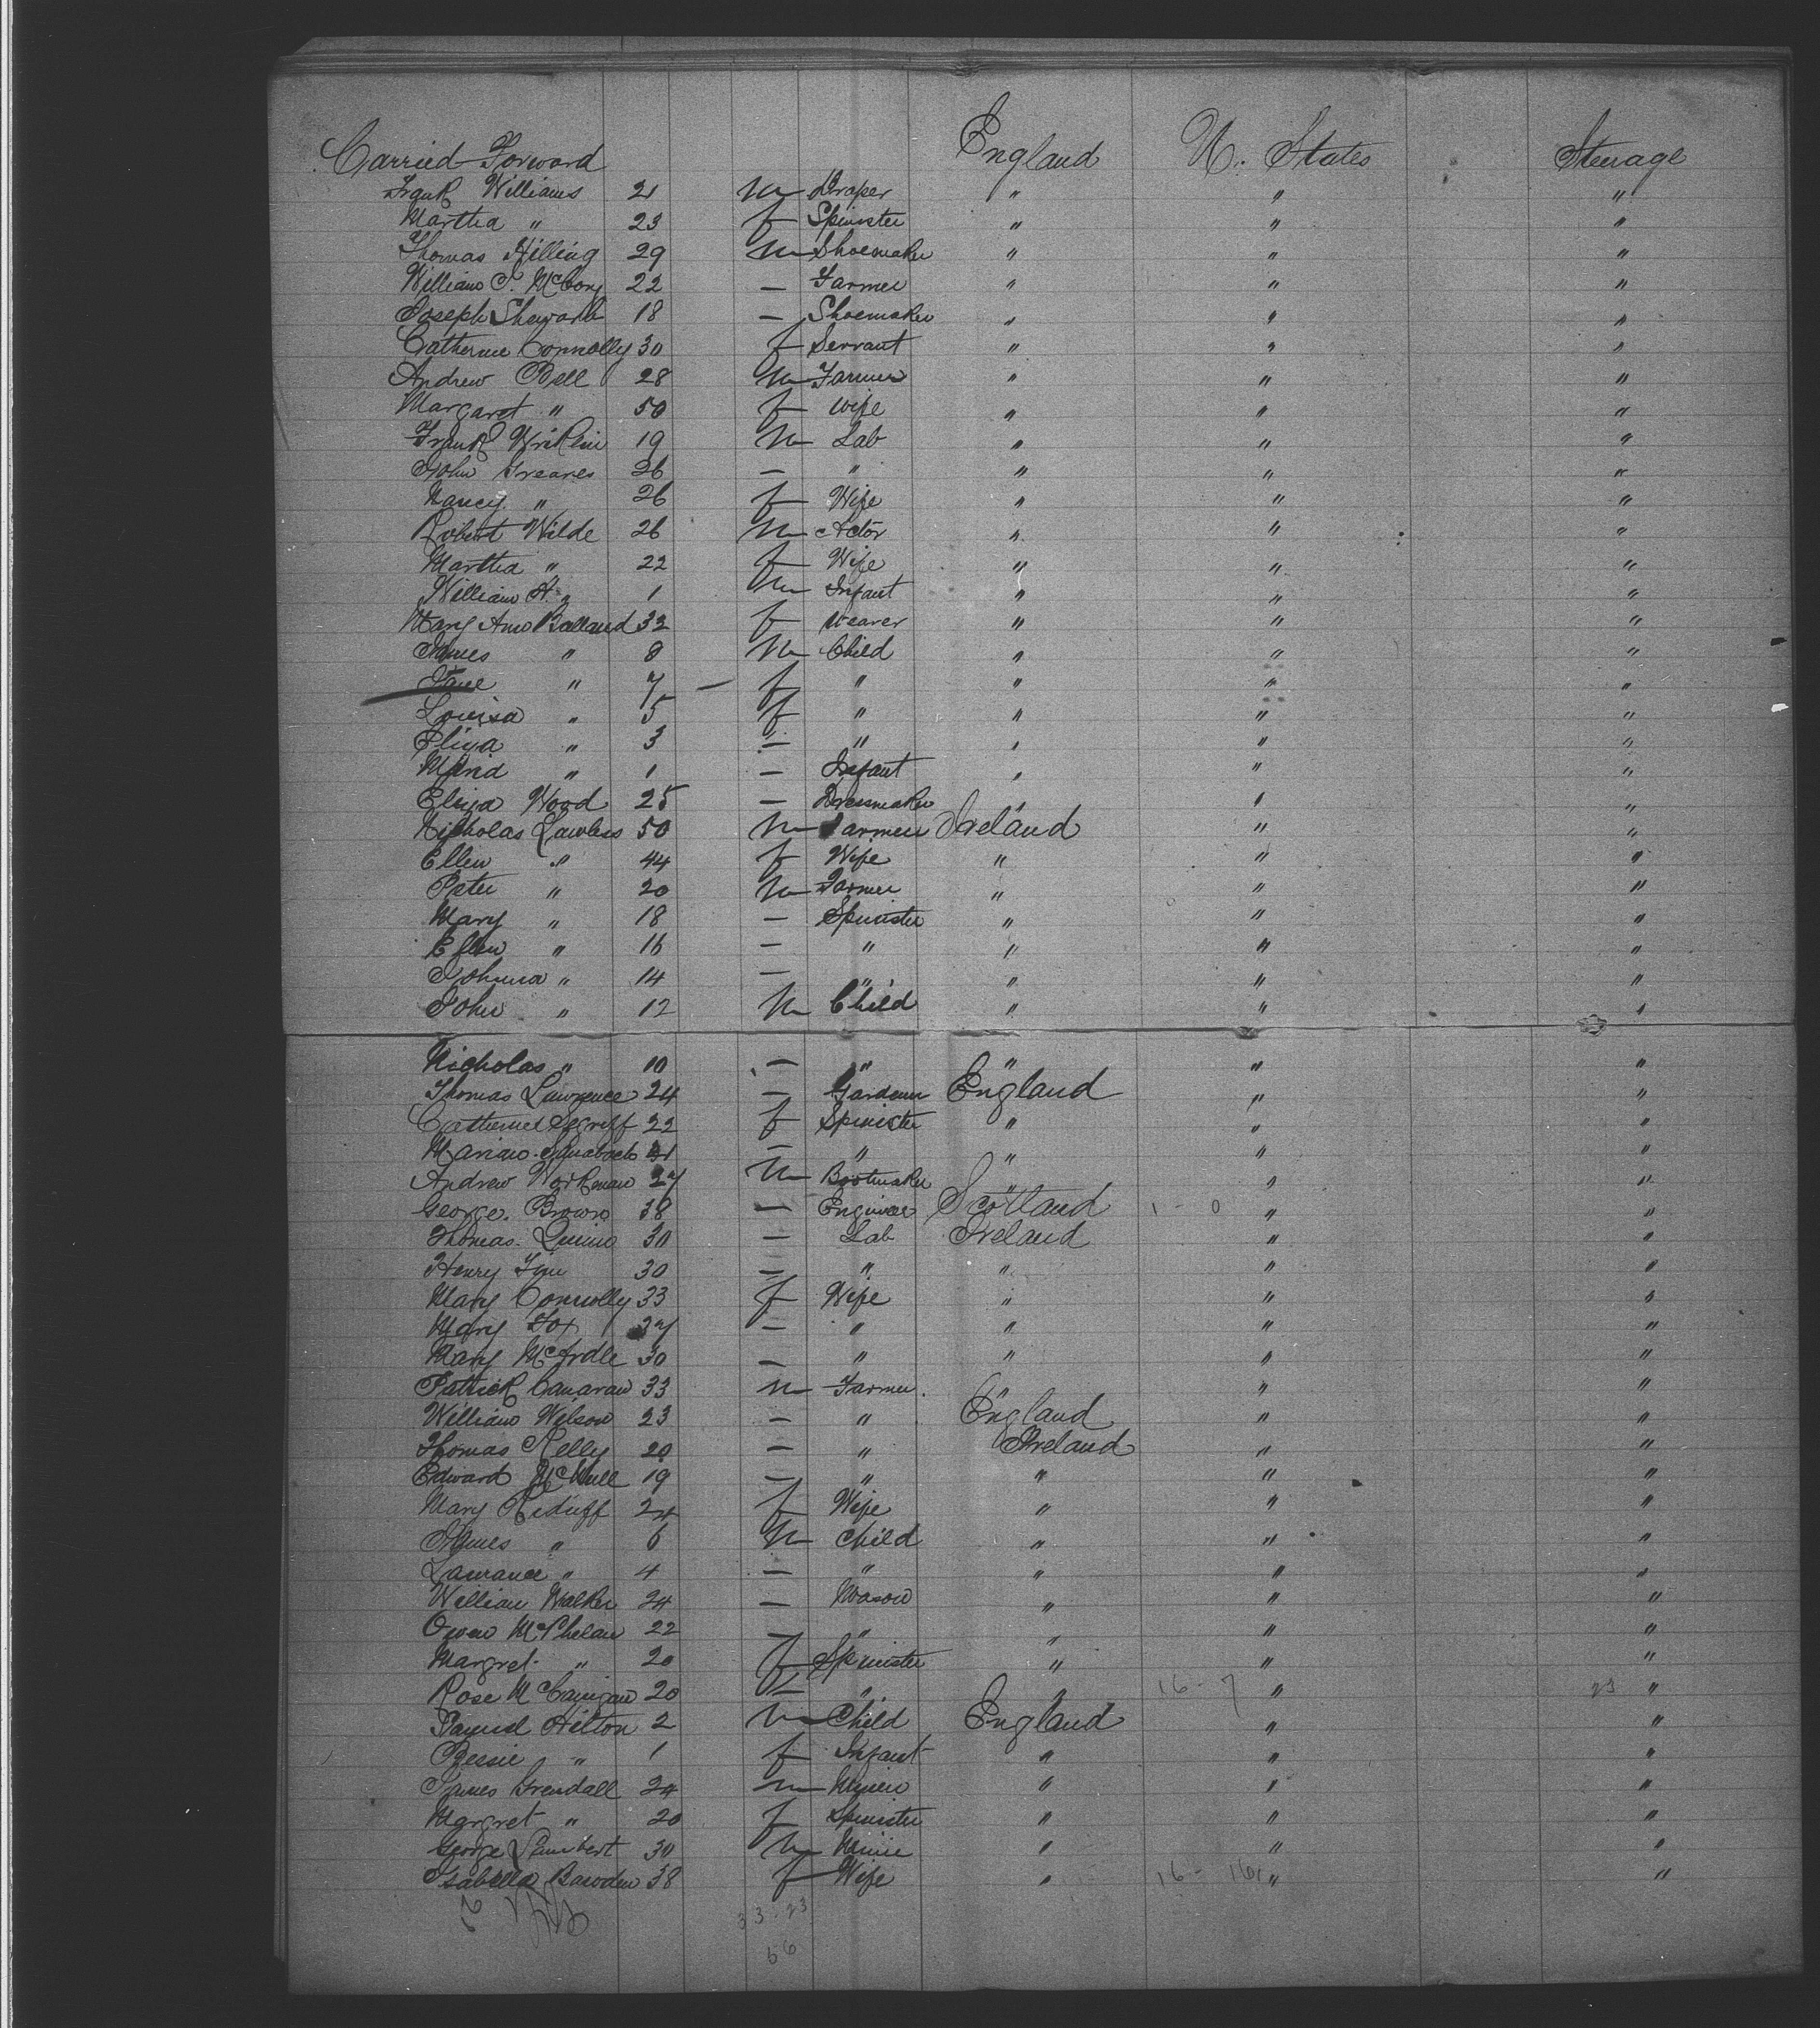 Carried Forward England U. States Steerage
Frank Williams 21 m Draper " " "
Martha " 23 f Spinster " " "
Thomas Hilling 29 m Shoemaker " " "
William J. McCory 22 — Farmer " " "
Joseph 18 — Shoemaker " " "
Catherine Connolly 30 f Servant " " "
Andrew Bell 28 m Farmer " " "
Margaret " 50 f Wife " " "
Frank 19 m Lab " " "
John Greaves 26 — " " " "
Nancy " 26 f Wife " " "
Robert Wilde 26 m Actor " " "
Martha " 22 f Wife " " "
William H. " 1 m Infant " " "
Mary Ann Balland 32 f Weaver " " "
James " 8 m Child " " "
Jane " 7 — f " " " "
Louisa " 5 f " " " "
Eliza " 3 — " " " "
" 1 — Infant " " "
Eliza Wood 25 — Dressmaker " " "
Nicholas Lawless 50 m Farmer Ireland " "
Ellen " 44 f Wife " " "
Peter " 20 m Farmer " " "
Mary " 18 — Spinster " " "
Ellen " 16 — " " " "
Johnna " 14 — " " " "
John " 12 m Child " " "
Nicholas " 10 — " " " "
Thomas Lawrence 24 — Gardener England " "
Catherine 22 f Spinster " " "
— " " " "
Andrew Workman 27 m Bootmaker " " "
George Brown 38 — Engineer Scotland 1 - 0 " "
Thomas Quinn 30 — Lab Ireland " "
Henry 30 — " " " "
Mary Connolly 33 f Wife " " "
Mary Fox 37 — " " " "
Mary McArdle 30 — " " " "
Patrick Canavan 33 m Farmer " " "
William Wilson 23 — " England " "
Thomas Kelly 20 — " Ireland " "
Edward 19 — " " " "
Mary 24 f Wife " " "
James " 6 m Child " " "
Lawrance " 4 — " " " "
William Walker 24 — Mason " " "
Owen McPhelan 22 — " " " "
Margret " 20 f Spinster " " "
Rose 20 f " " 16 - 7 " 23 "
Hilton 2 m Child England " "
Bessie " 1 f Infant " " "
James Grendall 24 m " " "
Margret " 20 f Spinster " " "
George Lambert 30 m " " "
Isabella Bawden 38 f Wife " 16 - 16 " "
33 . 23
56